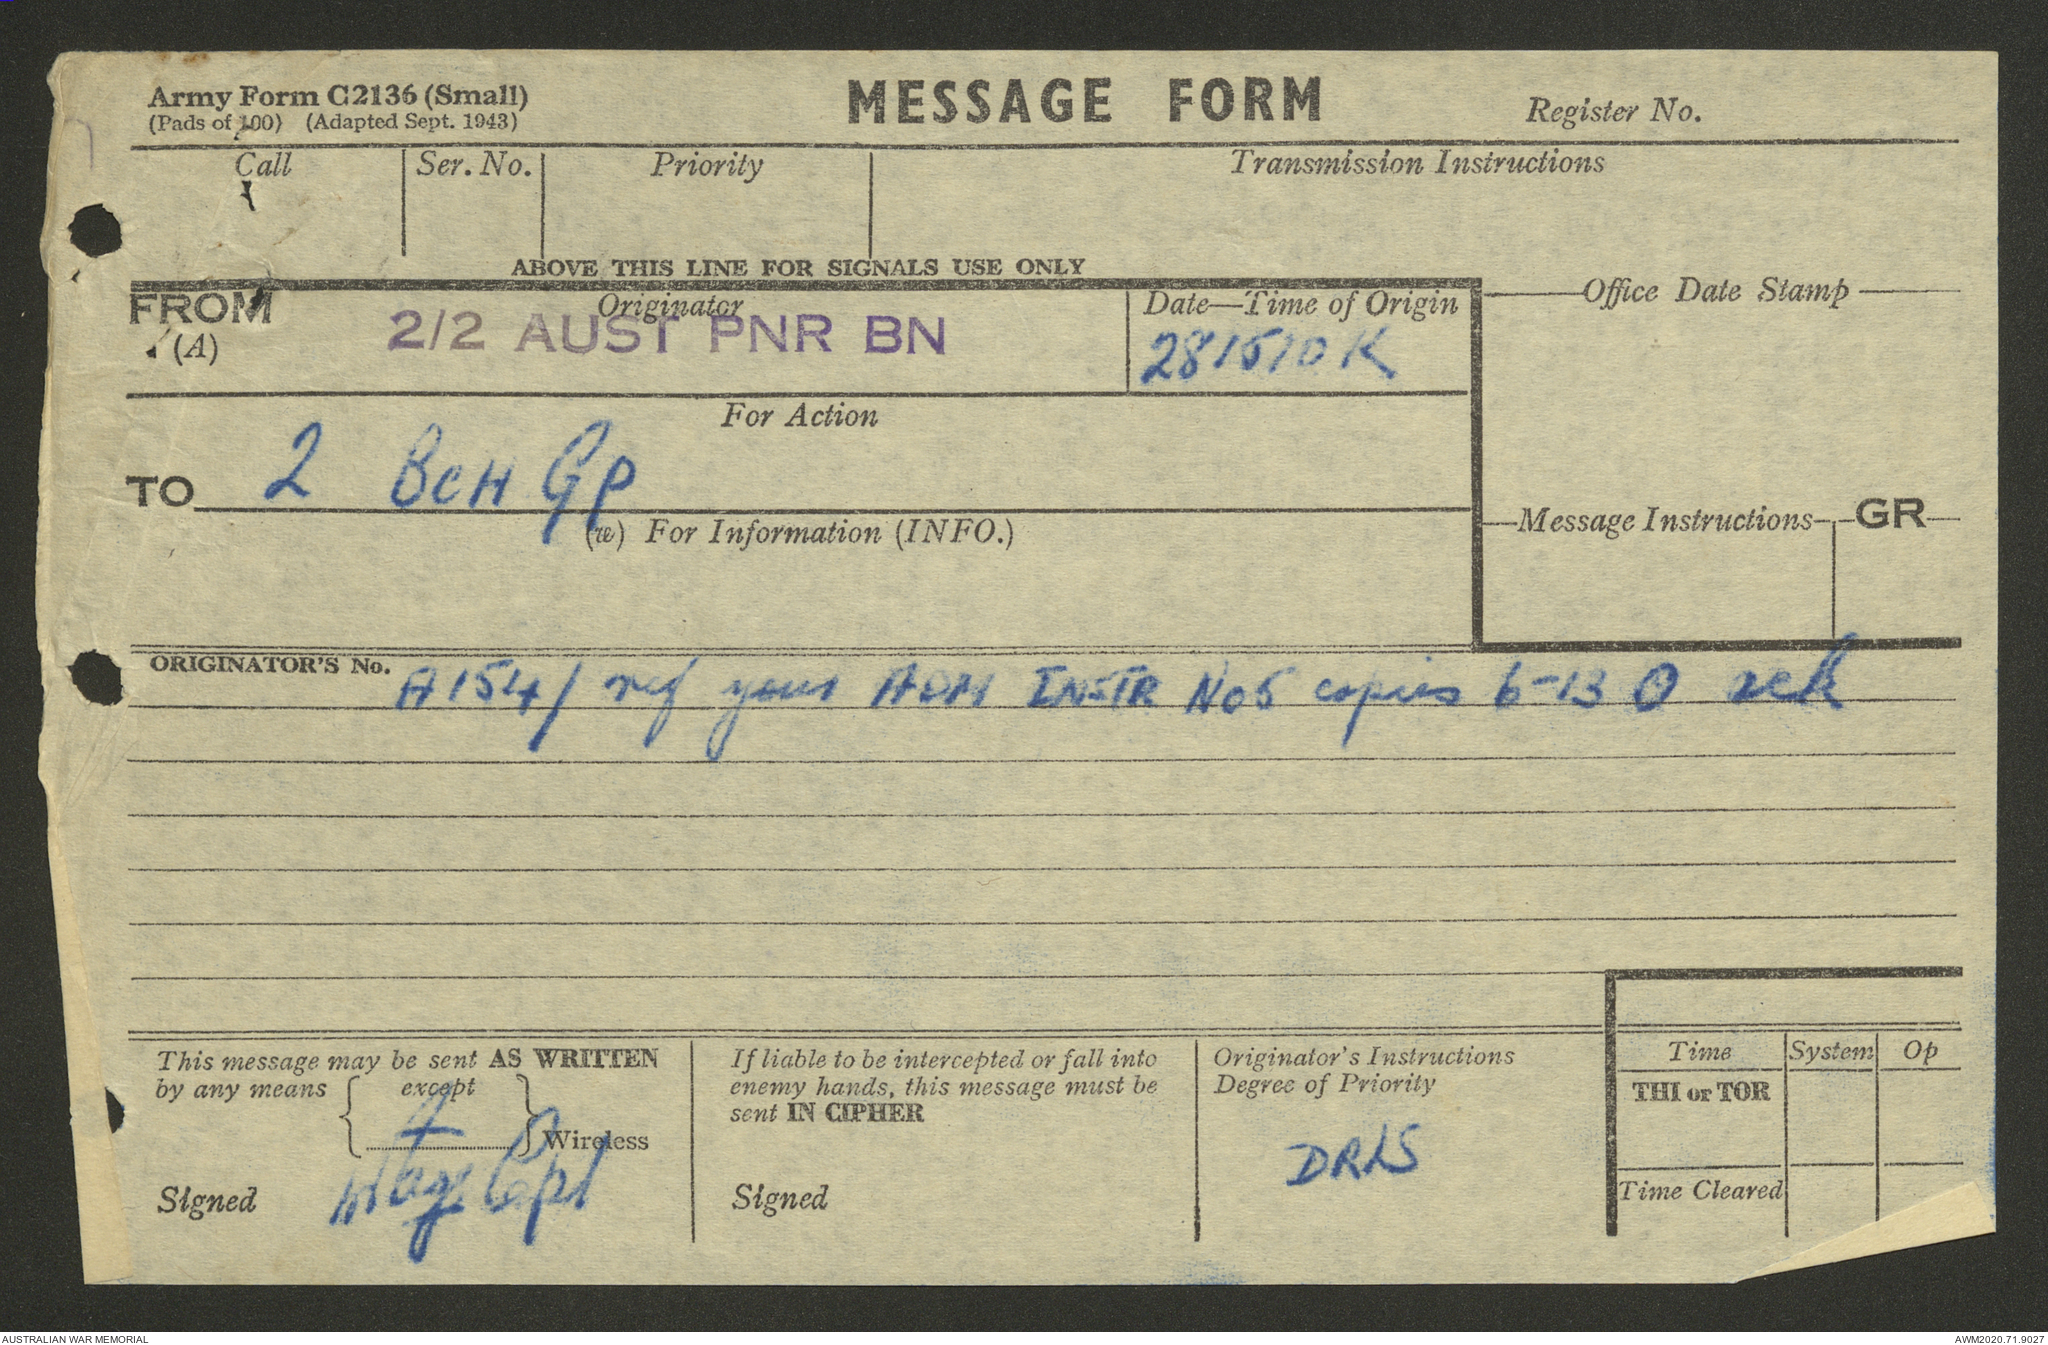 Army Form C2136 (Small)
(Pads of 100) (Adapted Sept. 1943)
MESSAGE FORM
Register No.
Call
Ser. No.
Priority
Transmission Instructions
ABOVE THIS LINE FOR SIGNALS USE ONLY
FROM
(A)
Originator
2/2 AUST PNR BN
Date—Time of Origin
281510K
Office Date Stamp
For Action
TO 2 BCH GP
(w) For Information (INFO.)
Message Instructions
GR
ORIGINATOR'S No. A154/ ref your ADM INSTR No5 copies 6-13 O ack
This message may be sent AS WRITTEN
by any means except
Wireless
Signed Capt
If liable to be intercepted or fall into
enemy hands, this message must be
sent IN CIPHER
Signed
Originator's Instructions
Degree of Priority
DRLS
Time System Op
THI or TOR
Time Cleared
AUSTRALIAN WAR MEMORIAL
AWM2020.71.9027